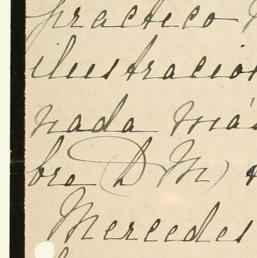 practico
ilustracion
nada más
bre (D M)
Mercedes